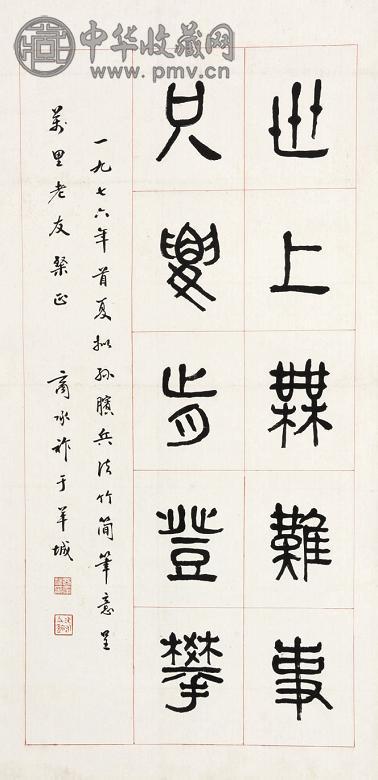 中华收藏网
www.pmv.cn
世上無難事
只要肯登攀
一九七六年首夏拟孙膑兵法竹简笔意呈
萬里老友粲正 商承祚于羊城